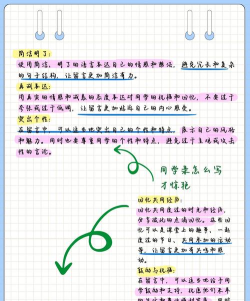 简洁明了:
使用简洁、明了的语言表达自己的情感和想法，避免冗长和复杂
的句子结构，让留言更加简洁有力。
真诚表达:
用真实的情感和诚恳的态度表达对同学的祝福和回忆，不要过于
夸张或过于低调，让留言更加贴近自己的内心感受。
突出个性:
在留言中，可以适当地突出自己的个性和特点，展示自己的风格
和魅力。同时也要尊重同学的个性和特点，避免过于主观或攻击
性的言论。
同学录怎么写
才惊艳
回忆共同经历:
回忆共同度过的时光和经历，
分享彼此的点滴回忆。这些回
忆可以是课堂上的趣事、一起
度过的节日、共同参加的活动
等，让留言更加有共鸣和感
鼓励与祝福:
在留言中，可以适当地给予同
学鼓励和支持，祝愿他们未来